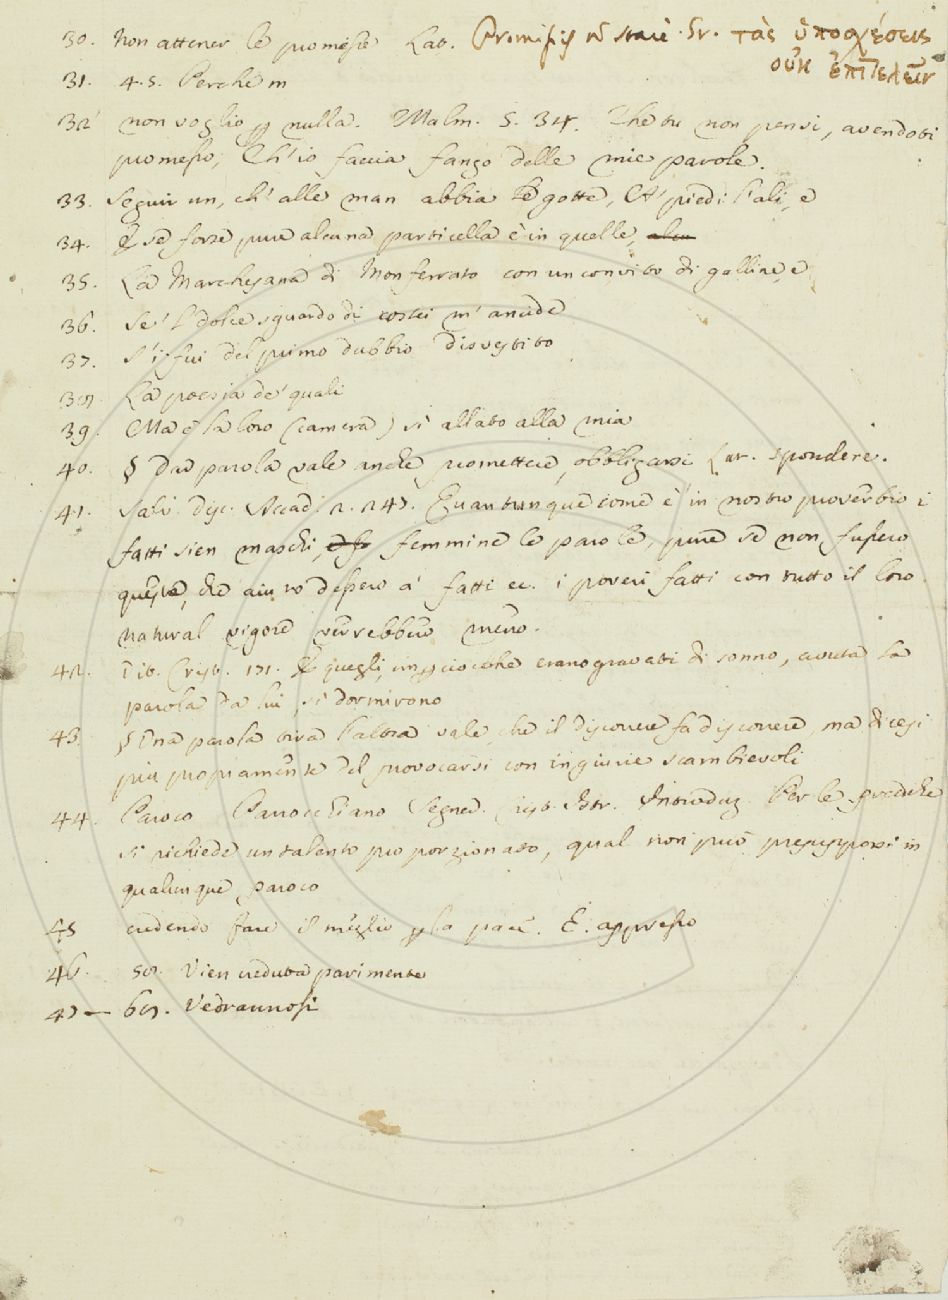 30. Non attener le promesse Lat. Promissis nō stare. Gr. τὰς ὑποσχέσεις
οὐκ ἐπιτελεῖν
31. 4. 5. Perche m
32 non voglio p nulla. Malm. 5. 34. Che tu non pensi, avendoti
promesso, Ch'io faccia fango delle mie parole.
33. Seguir un, ch'alle man abbia le gotte, E a' piedi l'ali, e
34. E se forse pure alcuna particella è in quelle,
35. La Marchesana di Monferrato con un convito di galline, e
36. Se 'l dolce sguardo di costei m'ancide
37. S'i fui del primo dubbio disvestito
38. La poesia de' quali
39. Ma è la loro (camera) sì allato alla mia
40. § Dar parola vale anche promettere, obbligarsi Lat. spondere.
41. Salv. disc. Accad. 2. 247. Quantunque come è in nostro proverbio i
fatti sien maschi, femmine le parole, pure se non fussero
queste, che aiuto dessero a' fatti ec. i poveri fatti con tutto il loro
natural vigore verrebbero meno.
42. Vit. Crist. 171. E quegli, imperciocche erano gravati di sonno, avuta la
parola da lui, si dormirono
43. § Una parola tira l'altra vale, che il discorrere fa discorrere, ma dicesi
piu propiamente del provocarsi con ingiurie scambievoli
44. Paroco Parrocchiano Segner. Crist. Instr. Introduz. Per le prediche
si richiede un talento proporzionato, qual non può presupporsi in
qualunque paroco
45 credendo fare il meglio p la pace. E. appresso
46. 58. Vien creduta parimente
47 — 68. Vedrannosi